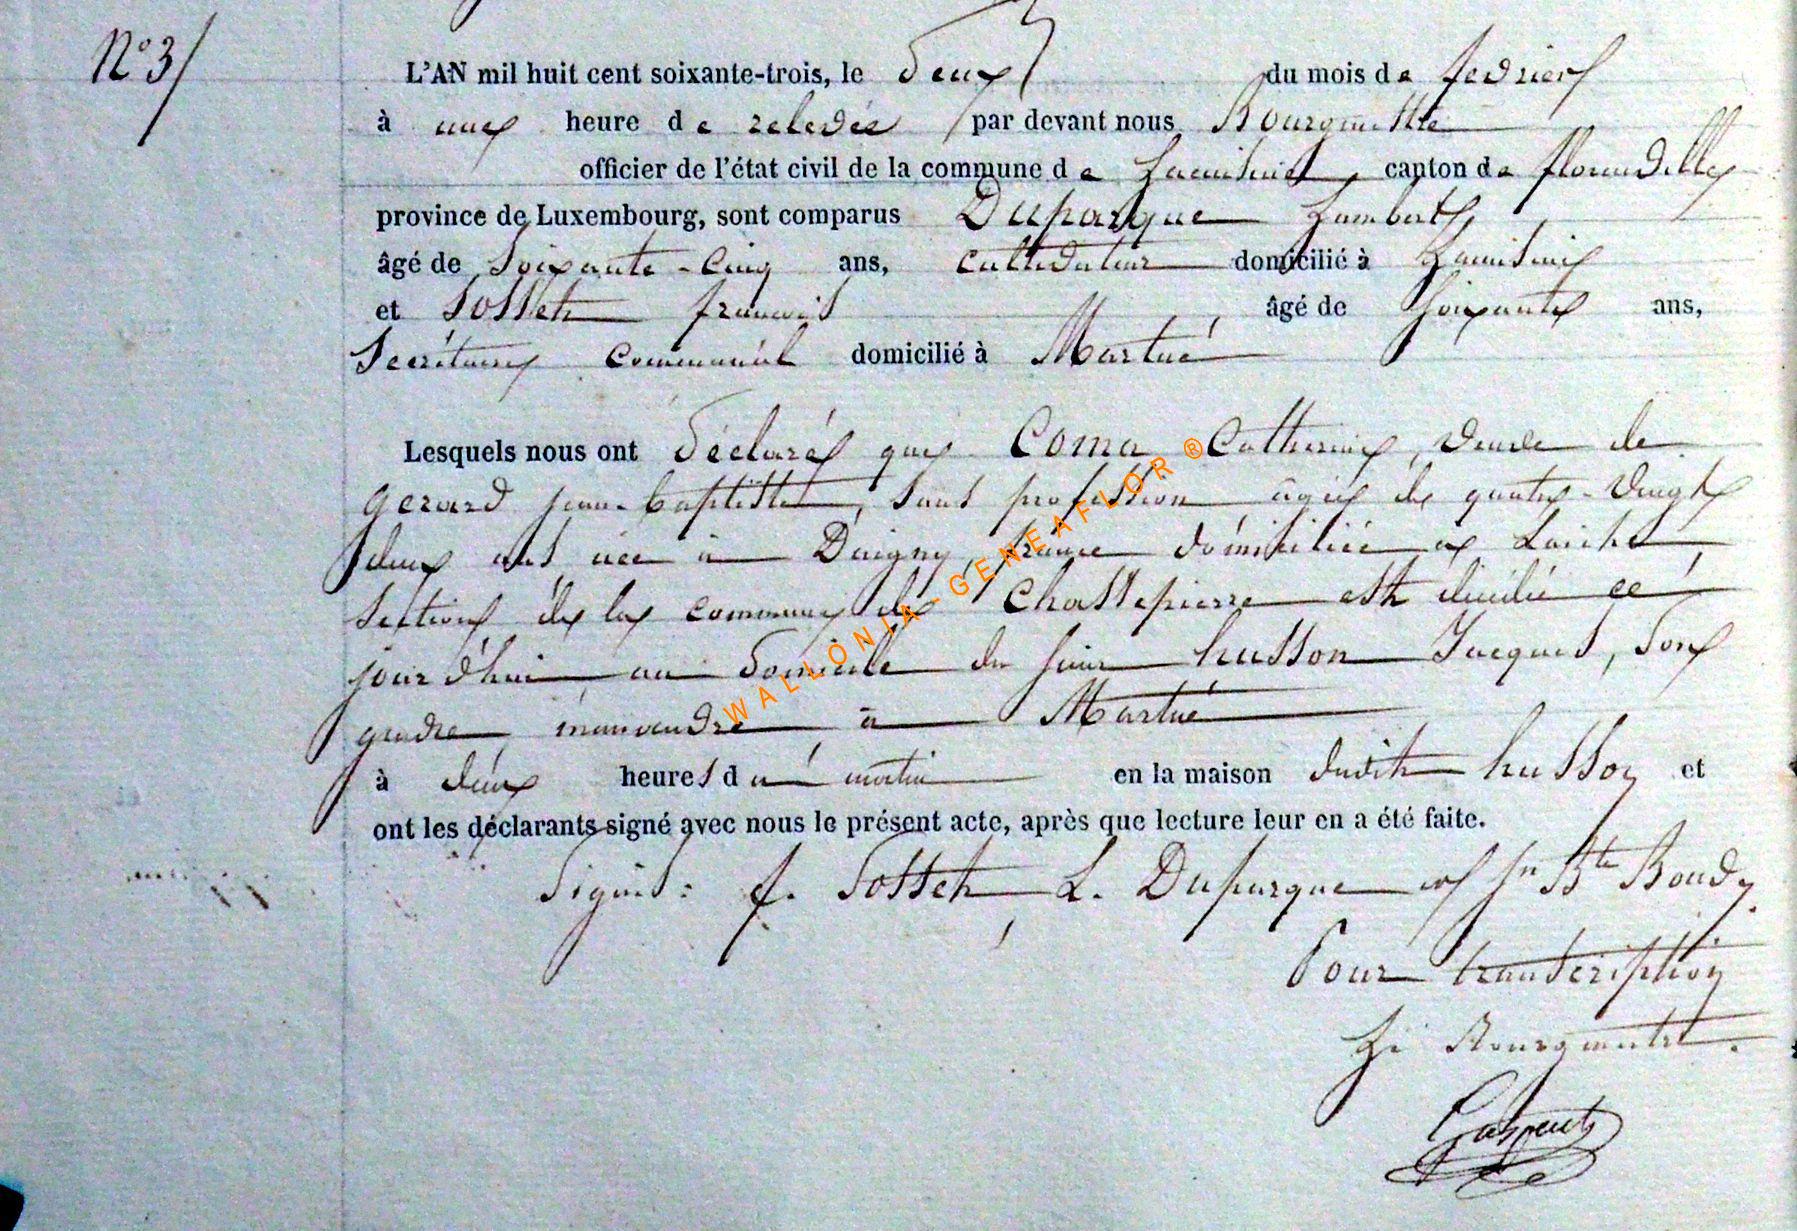 N° 3/
L'AN mil huit cent soixante-trois, le deux du mois de fevrier
à une heure de relevée par devant nous Bourgmestre
officier de l'état civil de la commune de Lacuisine canton de florenville
province de Luxembourg, sont comparus Duparque Lambert
âgé de Soixante-Cinq ans, cultivateur domicilié à Lacuisine
et Sosset françois âgé de Soixante ans,
Secrétaire communal domicilié à Martué
Lesquels nous ont déclaré que Coma Catherine, veuve de
Gerard jean-baptiste, sans profession âgée de quatre-vingt
deux ans née à Daigny, france domiciliée à Laiche
Section de la commune de Chassepierre est décédée ce
jourd'hui au domicile du sieur husson Jacques, son
gendre manoeuvre à Martué
à deux heures du matin en la maison dudit husson et
ont les déclarants signé avec nous le présent acte, après que lecture leur en a été faite.
Signé: f. Sosset L. Duparque et Jn Bte Boudy.
Pour transcription
Le Bourgmestre.
WALLONIA-GENEAFLOR ®